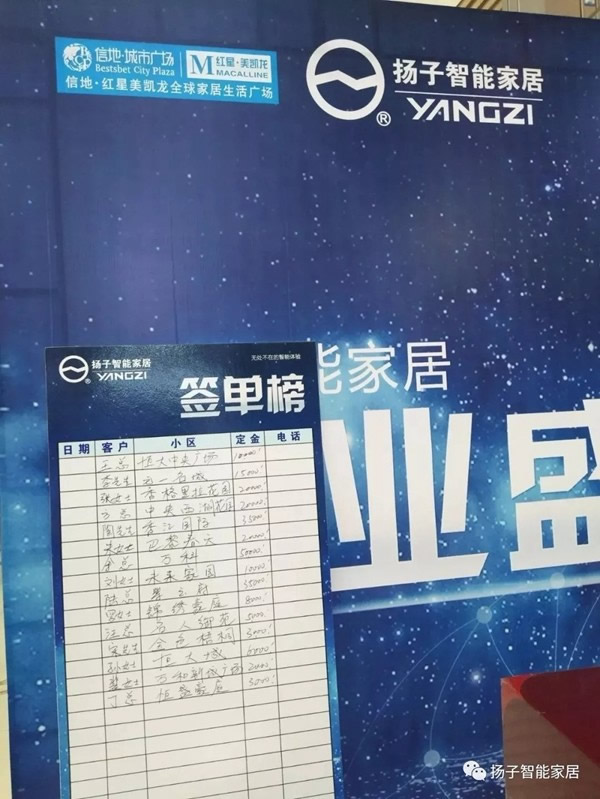 信地·城市广场
Bestsbet City Plaza
M 红星·美凯龙
MACALLINE
信地·红星美凯龙全球家居生活广场
扬子智能家居
YANGZI
®
能家居
业盛
扬子智能家居
® YANGZI
无处不在的智能体验
签单榜
日期 客户 小区 定金 电话
王总 恒大中央广场 10000
李先生 五一名城 15000
张女士 香格里拉花园 20000
万总 中央西湖花园 20000
陶先生 香江国际 3500
吴女士 巴黎春天 20000
余总 万科 50000
刘女士 未来家园 10000
陆总 35000
锦绣家庭 8000
汪总 名人御苑 5000
宋先生 金色梧桐 3000
孙女士 恒大城 6000
女士 万和新城广场 2000
丁总 恒盛豪庭 3000
扬子智能家居